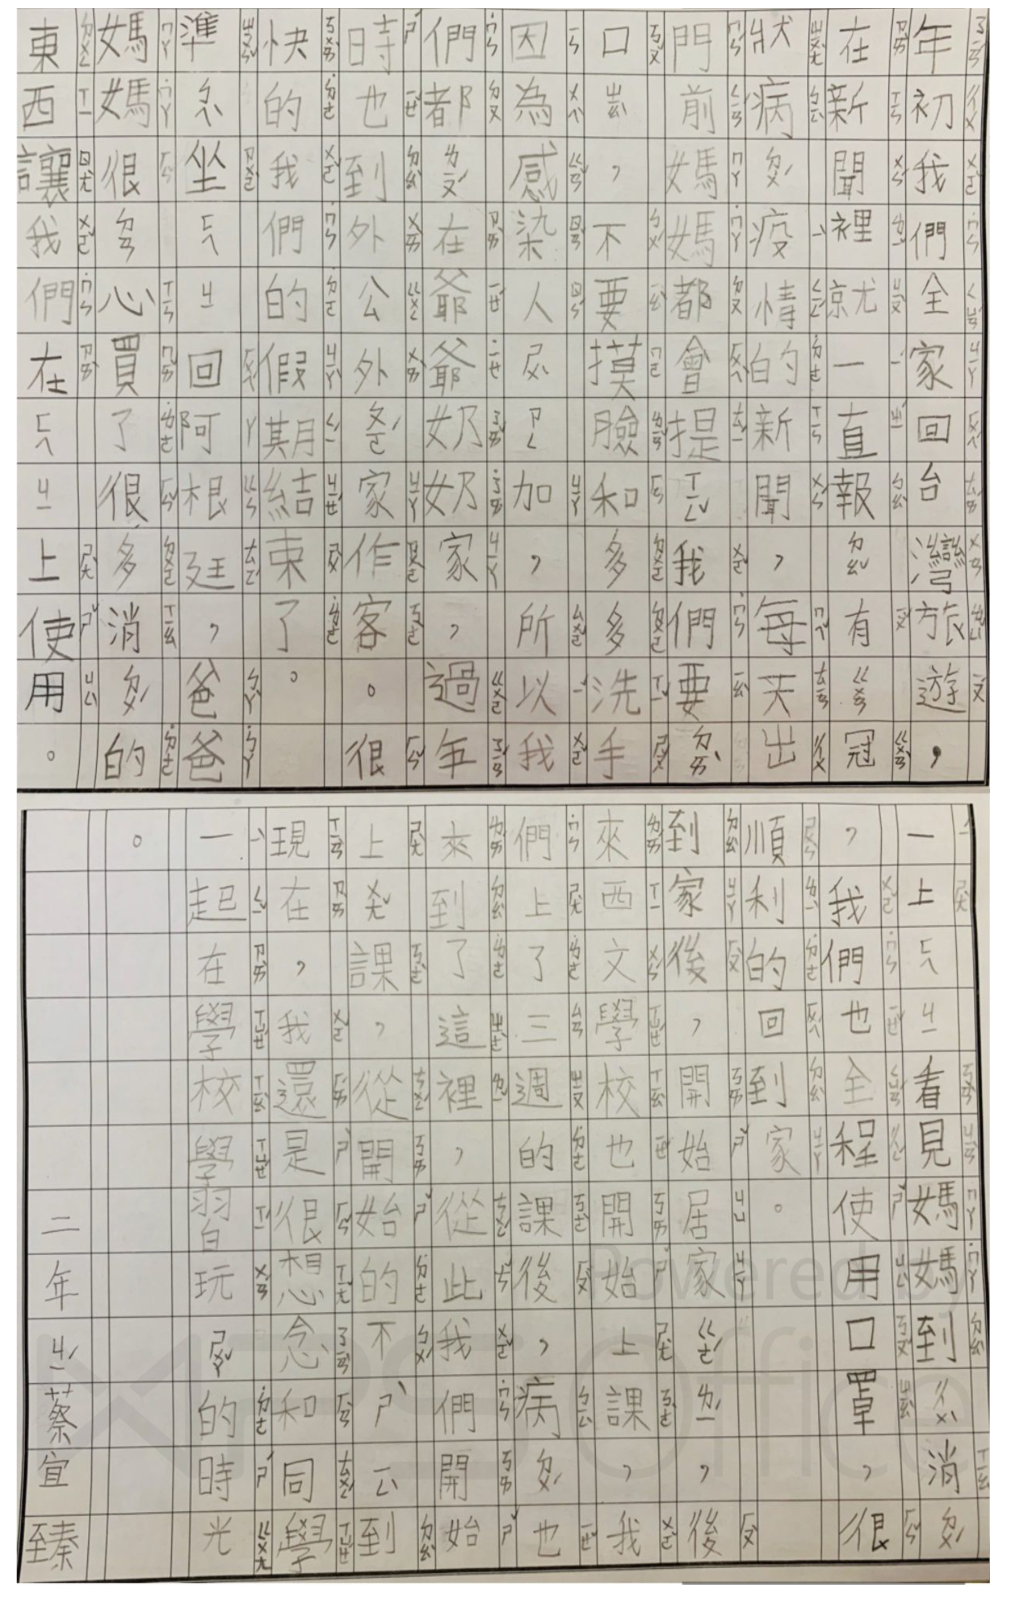 年初我們全家回台灣旅遊，
在新聞裡就一直報ㄉㄠˇ有ㄍㄨㄢ冠
狀病ㄉㄨˊ疫情的新聞，每天出
門前媽媽都會提ㄒㄧㄥˇ我們要ㄉㄞˋ
口ㄓㄠˋ，不要摸臉和多多洗手
因為感染人ㄕㄨˋㄗㄥ加，所以我
們都ㄌㄡˊ在爺爺奶奶家，過年
時也到外公外ㄆㄛˊ家作客。很
快的我們的假期結束了。
準ㄅㄟˋ坐ㄈㄟㄐㄧ回阿根廷，爸爸
媽媽很ㄉㄢ心買了很多消ㄉㄨˊ的
東西讓我們在ㄈㄟㄐㄧ上使用。
一上ㄈㄟㄐㄧ看見媽媽到ㄔㄨˋ消ㄉㄨˊ
，我們也全程使用口罩，很
順利的回到家。
到家後，開始居家ㄍㄜˊㄌㄧˊ，後
來西文學校也開始上課，我
們上了三週的課後，病ㄉㄨˊ也
來到了這裡，從此我們開始
上ㄨㄤˇ課，從開始的不ㄕˋㄧㄥˋ到
現在，我還是很想念和同學
一起在學校學習玩ㄕㄨㄚˇ的時光
。
二年ㄐㄧˊ蔡宜臻
Powered by
WPS Office